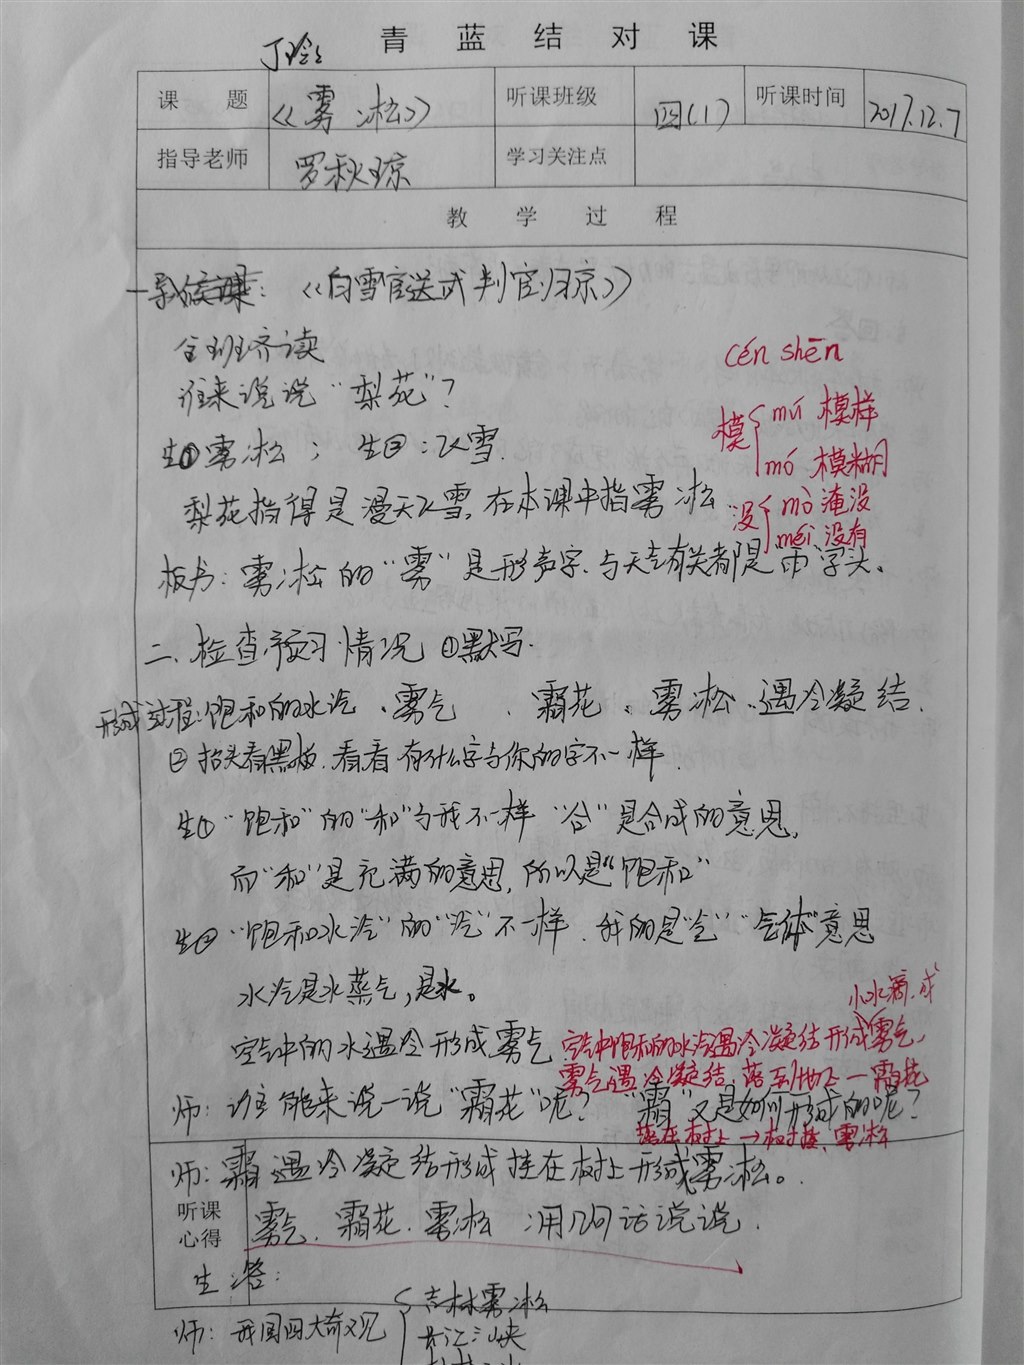 青 蓝 结 对 课
丁玲
课 题 《雾凇》 听课班级 四(1) 听课时间 2017.12.7
指导老师 罗秋琼 学习关注点
教 学 过 程
一 课: 《白雪 送武判官归京》
全班齐读
cén shēn
谁来说说“梨花”?
模 mú 模样
mó 模糊
生① 雾凇 ; 生②:飞雪.
梨花指得是漫天飞雪,在本课中指雾凇
没 mò 淹没
méi 没有
板书:雾凇的“雾”是形声字.与天气有关都是雨字头。
二、检查预习情况 ①默写.
形成过程:饱和的水汽、雾气、霜花、雾凇、遇冷凝结.
②抬头看黑板.看看有什么字与你的字不一样.
生①“饱和”的“和”与我不一样 “合”是合成的意思,
而“和”是充满的意思,所以是“饱和”
生②“饱和水汽”的“汽”不一样.我的是“气”“气体”意思
水汽是水蒸气,是水。
小水滴.成
空气中的水遇冷形成雾气
空气中饱和的水汽遇冷凝结形成雾气,
雾气遇冷凝结.落到地上一霜花
师:谁能来说一说“霜花”呢?“霜”又是如何形成的呢?
落在树上→树挂、雾凇
师:霜遇冷凝结形成挂在树上形成雾凇。
听课
心得
雾气.霜花.雾凇 :用几句话说说.
生:答:
师:我国四大奇观
吉林雾凇
长江三峡